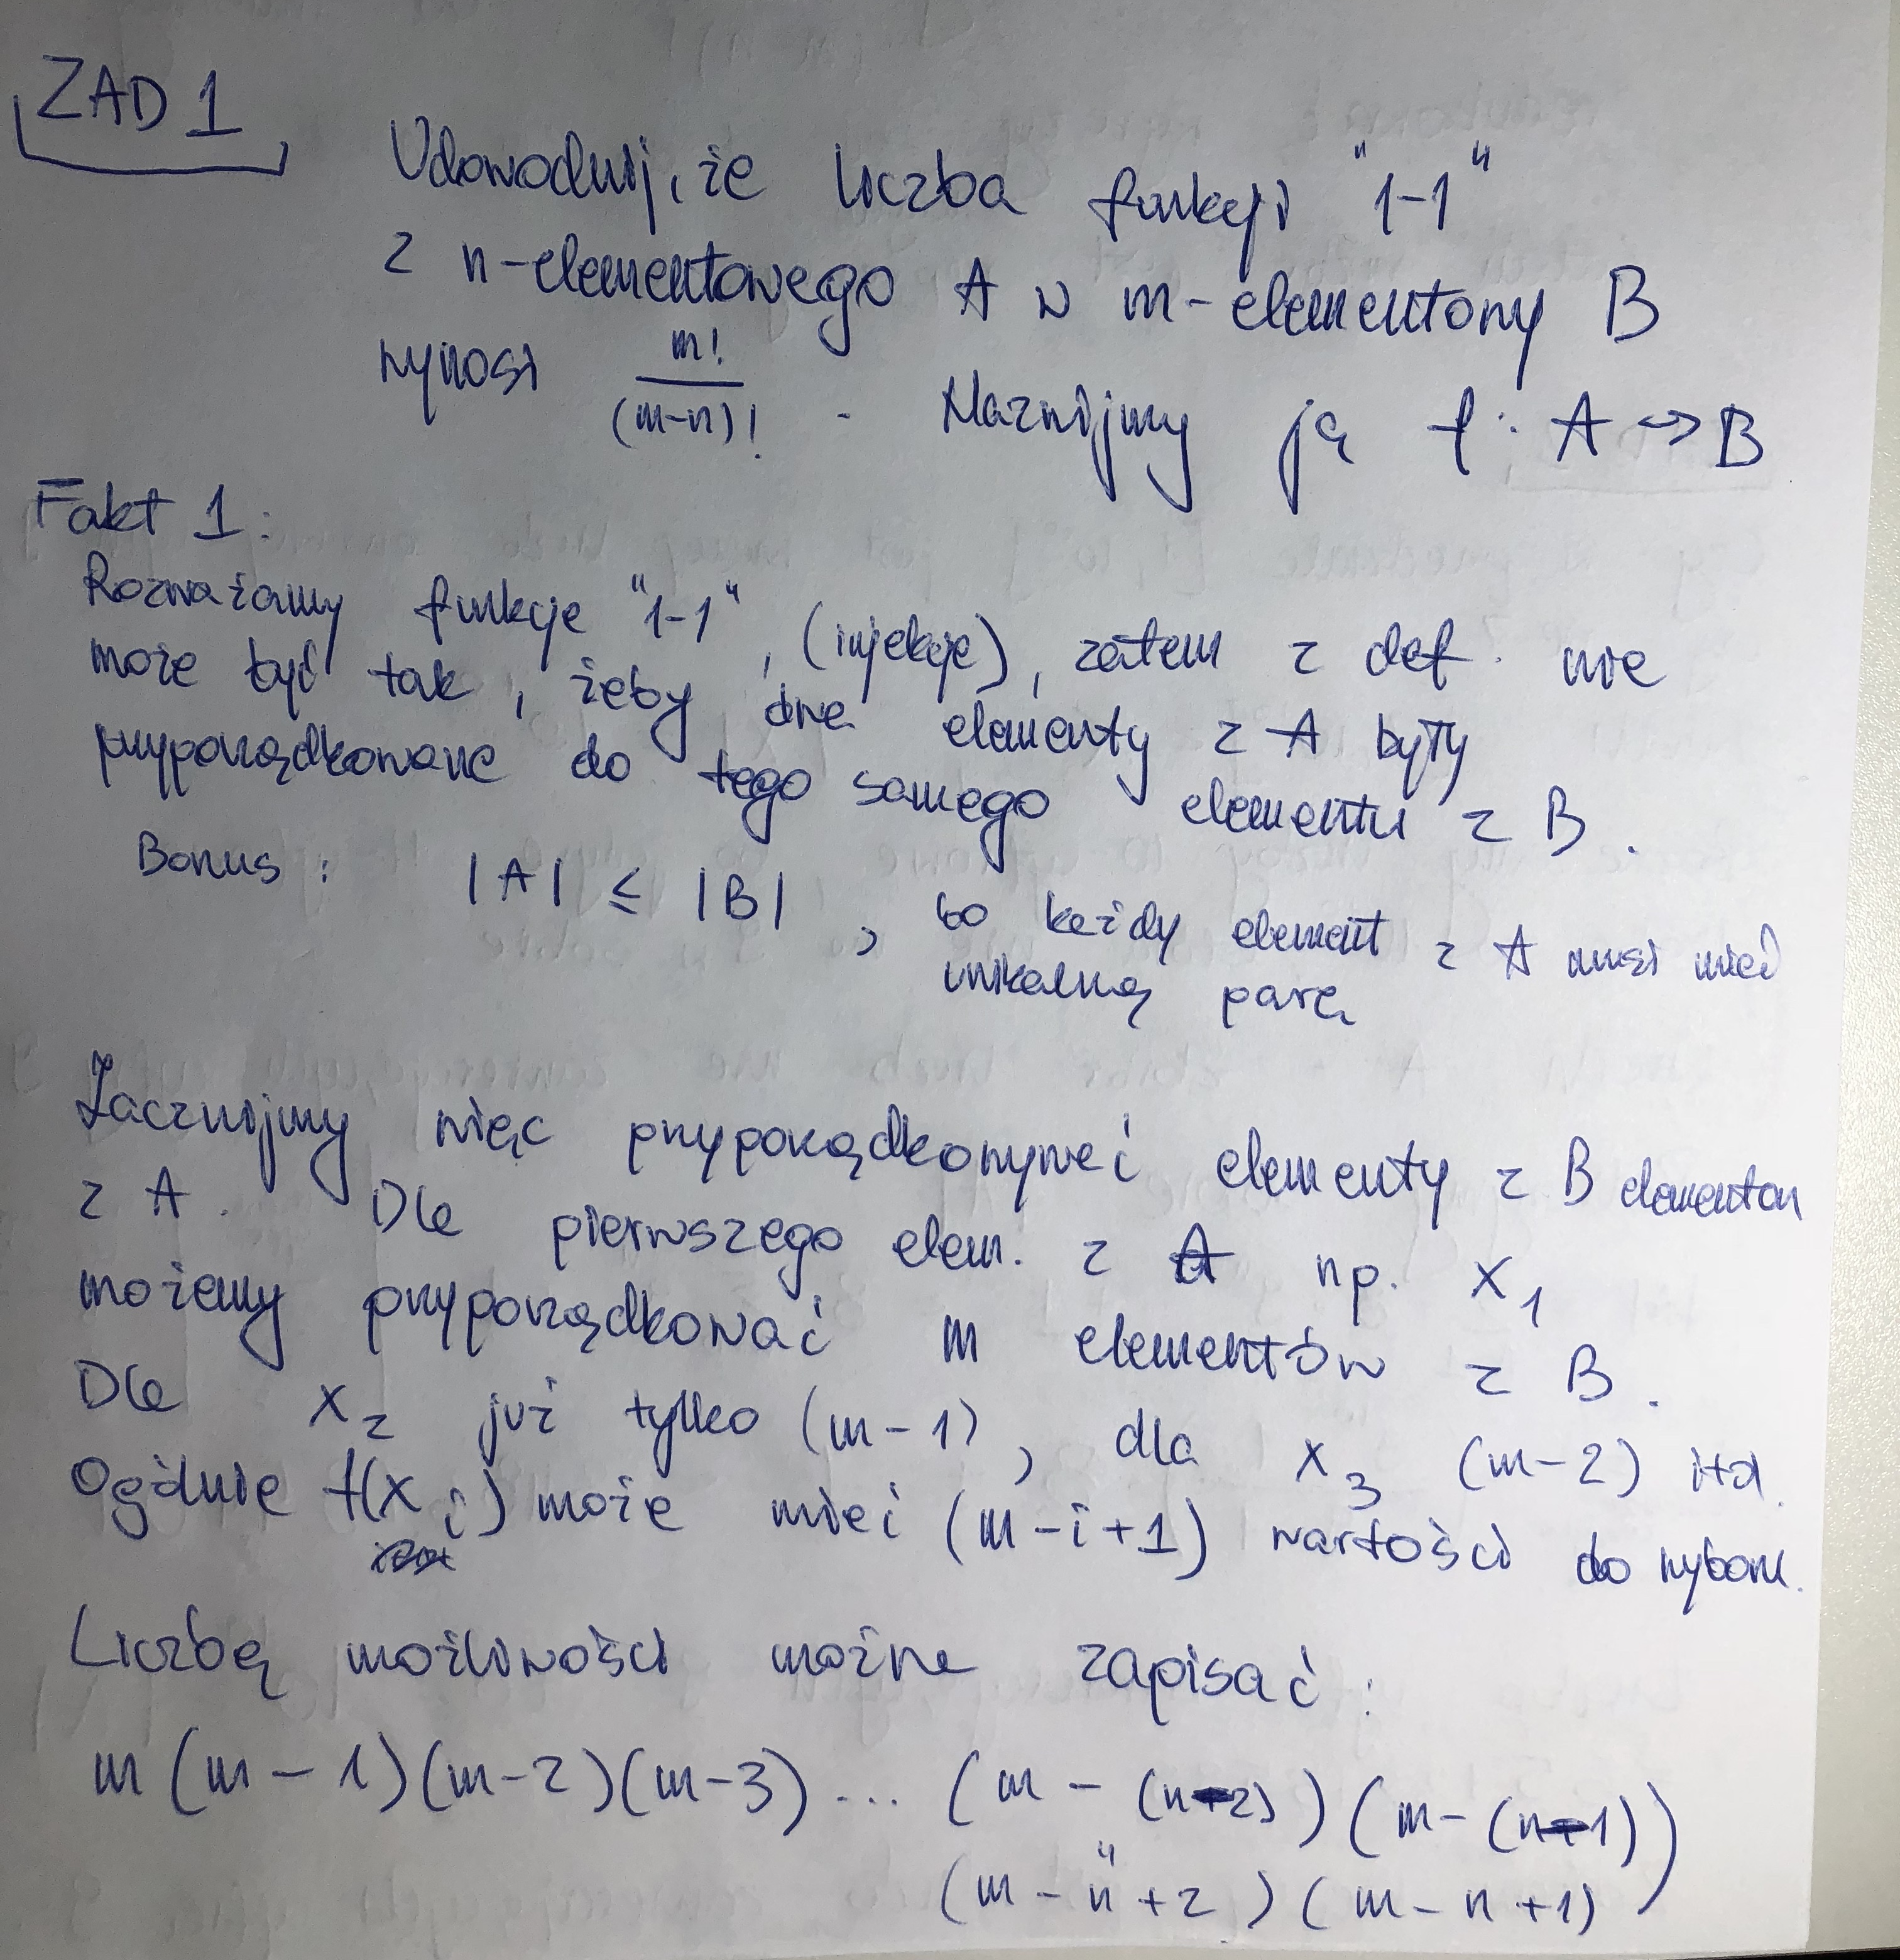 ZAD 1
Udowodnij, że liczba funkcji "1-1"
z n-elementowego A w m-elementowy B
wynosi m!/(m-n)! . Nazwijmy ją f: A → B
Fakt 1:
Rozważamy funkcje "1-1", (injekcje), zatem z def. nie
może być tak, żeby dwa elementy z A były
przyporządkowane do tego samego elementu z B.
Bonus: |A| ≤ |B|, bo każdy element z A musi mieć
unikalną parę
Zacznijmy więc przyporządkowywać elementy z B elementom
z A. Dla pierwszego elem. z A np. x₁
możemy przyporządkować m elementów z B.
Dla x₂ już tylko (m-1), dla x₃ (m-2) itd.
Ogólnie f(xᵢ) może mieć (m-i+1) wartości do wyboru.
Liczbę możliwości można zapisać:
m(m-1)(m-2)(m-3)... (m-(n-2))(m-(n-1))
"
(m-n+2)(m-n+1)